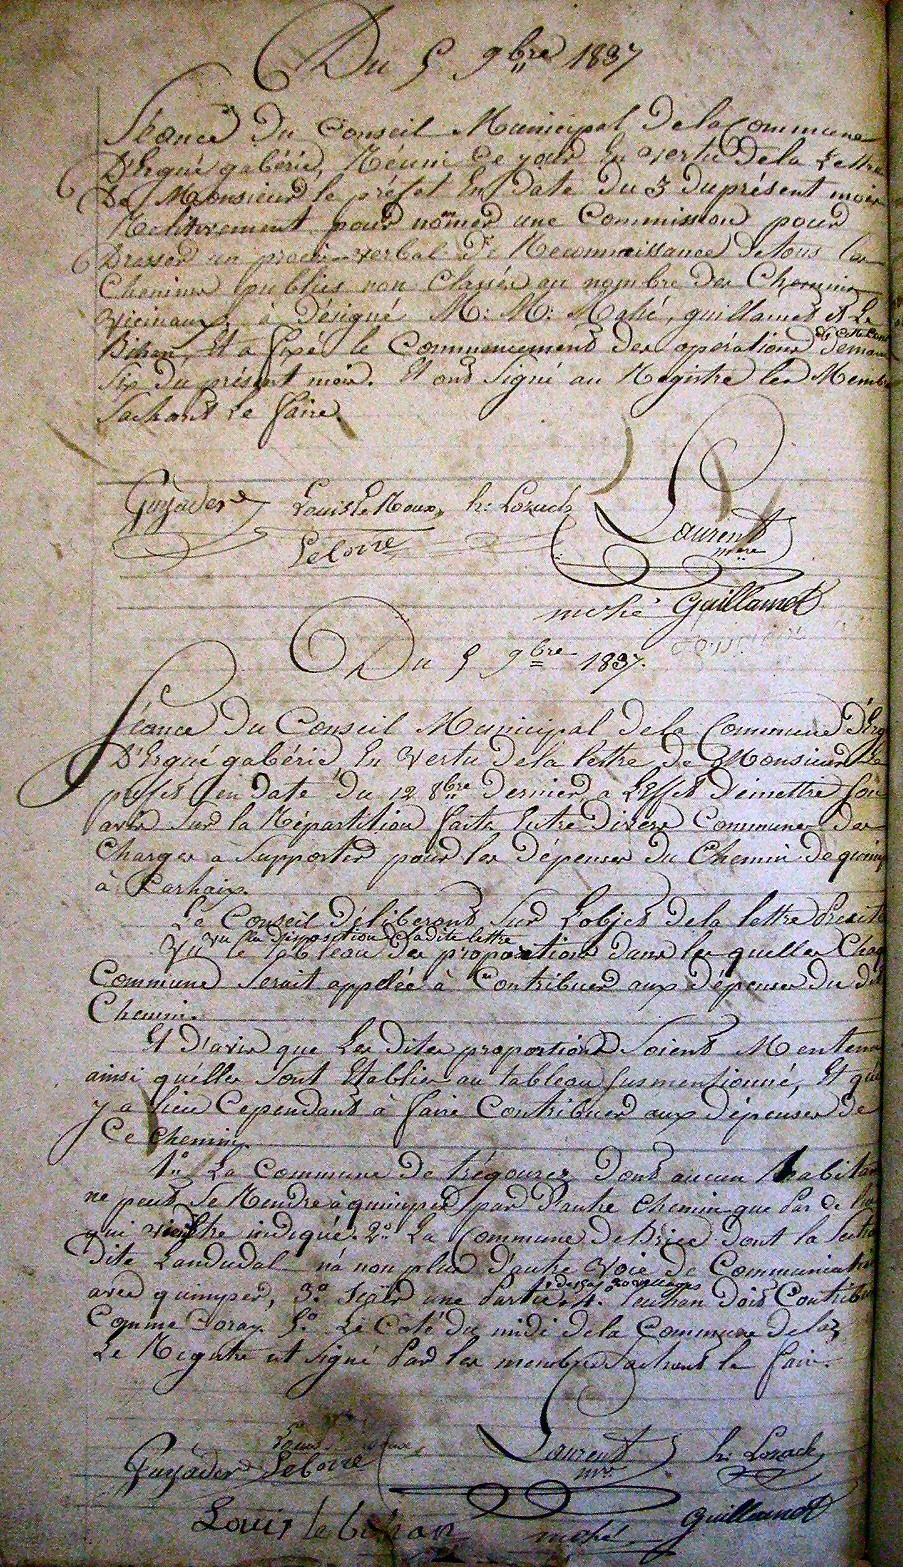 Du 5 9bre 1837
Séance Du Conseil Municipal De la Commune
D'Ergué gabéric, Réuni Ce jour En vertu De la Lettre
De Monsieur le préfet En Date Du 3 du présent mois
Relativement pour nommer une Commission pour
Dresser un procès verbal De Reconnaissance De tous les
Chemins publics non Classés au nombre des Chemins
vicinaux, à Désigné M: M: Mahé, guillamet et Le
Bihan, Et a fixé le Commencement des opérations
Six du présent mois. Et ont Signé au Registre les Membres
Sachant Le faire.
Guyader Louis Le Roux h: Lozach
Laurent
mre
Le Corre
mahé guillamet
Du 5 9bre 1837.
Séance Du Conseil Municipal de la Commune
D'Ergué gabéric En vertu de la lettre de Monsieur Le
préfet en date du 12 8bre Dernier a L'effet D'émettre son
avis Sur la Répartition faite Entre Divers Communes des
Charges a Supporter pour les Dépenses du Chemin de quimper
à Carhaix.
Le Conseil Deliberant Sur L'objet de la lettre Precitée
Vu la disposition de la dite lettre
Vu le tableau des proportions dans les quelles Chaque
Commune Serait appelée à Contribuer aux Dépenses Du dit
Chemin.
Et D'avis que Les dites proportions Soient Mentenu
ainsi qu'elles Sont Etablies au tableau Susmentionné, Et qu'il
y a lieu Cependant à faire Contribuer aux Dépenses de
Ce chemin
1º La Commune de trégourez Dont aucun habitant
ne peut Se Rendre à quimper par D'autre Chemin que Par
qui vient être indiqué. 2º La Commune de Briec dont la
Dite Landudal n'a non plus D'autre Voie De Communication
avec quimper, 3º une Partie 4º Leuhan Doit Contribuer
Comme Coray 5º Le Coté du midi de la Commune de Laz
Le Registre est Signé Par les membres Sachant le faire.
Guyader Louis Le Roux
Le Corre
Laurent
mre
h: Lozach
Louis le bihan mahé guillamet